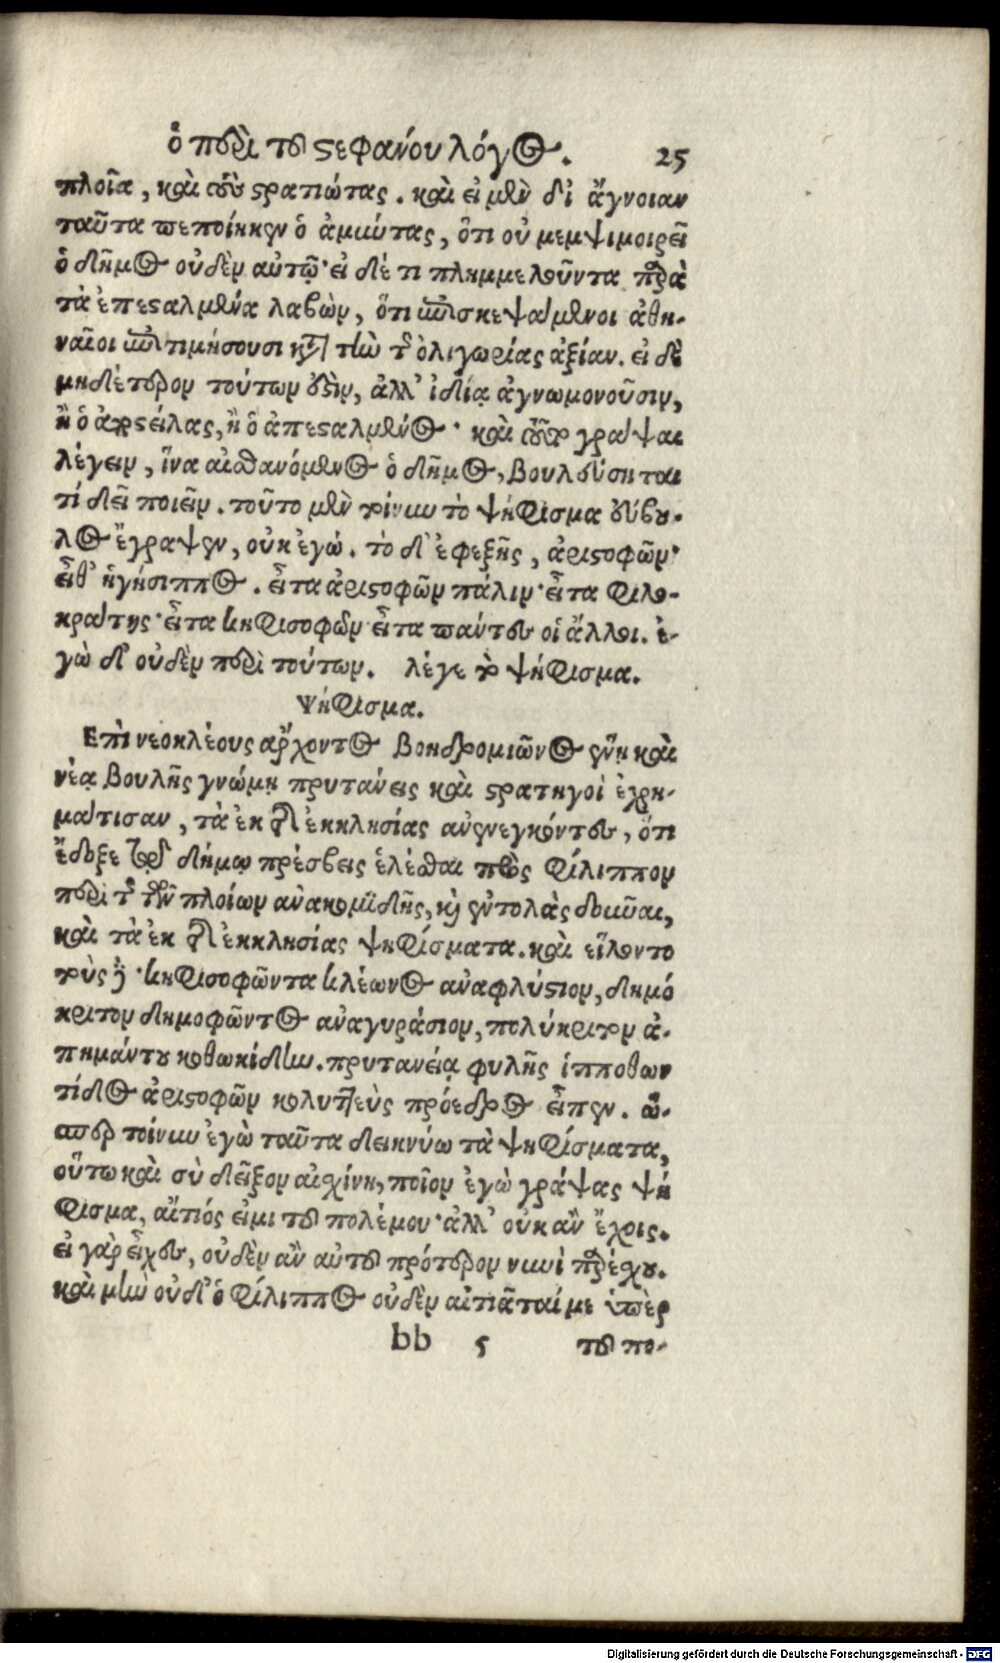 ὁ περὶ τοῦ στεφάνου λόγος. 25
πλοῖα, καὶ τοὺς στρατιώτας. καὶ εἰ μὲν δι' ἄγνοιαν
ταῦτα πεποίηκεν ὁ ἀμύντας, ὅτι οὐ μεμψιμοιρεῖ
ὁ δῆμος οὐδὲν αὐτῷ· εἰ δέ τι πλημμελοῦντα παρὰ
τὰ ἐπεσταλμένα λαβὼν, ὅτι ἐπισκεψάμενοι ἀθη-
ναῖοι ἐπιτιμήσουσι κατὰ τὴν τῆς ὀλιγωρίας ἀξίαν. εἰ δὲ
μηδέτερον τούτων ἐστὶν, ἀλλ' ἰδίᾳ ἀγνωμονοῦσιν,
ἢ ὁ ἀποστείλας, ἢ ὁ ἀπεσταλμένος· καὶ τοῦτο γράψαι
λέγειν, ἵνα αἰσθανόμενος ὁ δῆμος, βουλεύσηται
τί δεῖ ποιεῖν. τοῦτο μὲν τοίνυν τὸ ψήφισμα εὔβου-
λος ἔγραψεν, οὐκ ἐγώ. τὸ δ' ἐφεξῆς, ἀριστοφῶν·
εἶθ' ἡγήσιππος. εἶτα ἀριστοφῶν πάλιν· εἶτα φιλο-
κράτης· εἶτα κηφισοφῶν· εἶτα πάντες οἱ ἄλλοι. ἐ-
γὼ δ' οὐδὲν περὶ τούτων. λέγε τὸ ψήφισμα.
Ψήφισμα.
Επὶ νεοκλέους ἄρχοντος βοηδρομιῶνος ἕνῃ καὶ
νέᾳ βουλῆς γνώμῃ πρυτάνεις καὶ στρατηγοὶ ἐχρη-
μάτισαν, τὰ ἐκ τῆς ἐκκλησίας ἀνενεγκόντες, ὅτι
ἔδοξε τῷ δήμῳ πρέσβεις ἑλέσθαι πρὸς φίλιππον
περὶ τῆς τῶν πλοίων ἀνακομιδῆς, καὶ ἐντολὰς δοῦναι,
καὶ τὰ ἐκ τῆς ἐκκλησίας ψηφίσματα. καὶ εἵλοντο
τούς δε· κηφισοφῶντα κλέωνος ἀναφλύστιον, δημό
κριτον δημοφῶντος ἀναγυράσιον, πολύκριτον ἀ-
πημάντου κοθωκίδην. πρυτανείᾳ φυλῆς ἱπποθων
τίδος ἀριστοφῶν κολυττεὺς πρόεδρος εἶπεν. ὥ-
σπερ τοίνυν ἐγὼ ταῦτα δεικνύω τὰ ψηφίσματα,
οὕτω καὶ σὺ δεῖξον αἰσχίνη, ποῖον ἐγὼ γράψας ψή
φισμα, αἴτιός εἰμι τοῦ πολέμου· ἀλλ' οὐκ ἂν ἔχοις.
εἰ γὰρ εἶχες, οὐδὲν ἂν αὐτοῦ πρότερον νυνὶ παρέσχου.
καὶ μὴν οὐδ' ὁ φίλιππος οὐδὲν αἰτιᾶταί με ὑπὲρ
bb 5 τοῦ πο-
Digitalisierung gefördert durch die Deutsche Forschungsgemeinschaft - DFG